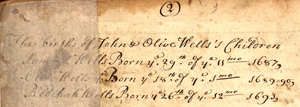 (2)
The births of John & Olive Wells's Children
Wells Born yᵉ 29ᵗʰ of yᵉ 11ᵐᵒ 1687
Wells Born yᵉ 18ᵗʰ of yᵉ 1689-90
Born yᵉ 26ᵗʰ of yᵉ 12ᵐᵒ 1692